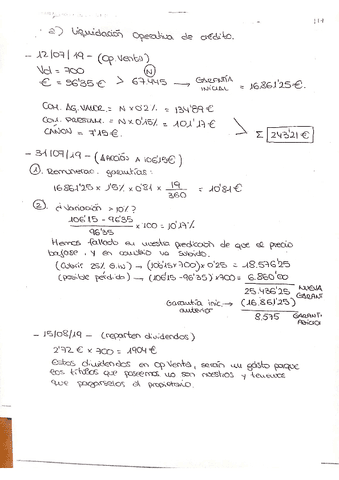 2) Liquidación Operativa de crédito.
- 12/07/19 - (Op. Venta)
Vol = 700
€ = 96'35 € > 67.445 → GARANTÍA INICIAL = 16.861'25 €.
N
COM. AG. VALOR. = N x 0'2% = 134'89 €
COM. PRESTAM. = N x 0'15% = 101'17 €
CANON = 7'15 €
Σ 243'21 €
- 31/07/19 - (ACCIÓN A 106'15 €)
1. Remunerac. garantías:
16.861'25 x 1'5% x 0'81 x 19/360 = 10'81 €
2. ¿Variación > 10%?
106'15 - 96'35 / 96'35 x 100 = 10'17%
Hemos fallado en nuestra predicción de que el precio
bajase, y en cambio ha subido.
(Cubrir 25% G.in) → (106'15 x 700) x 0'25 = 18.576'25
(posible pérdida) → (106'15 - 96'35) x 700 = 6.860'00
25.436'25 NUEVA GARANT
Garantía inic. anterior → (16.861'25)
8.575 GARANT ADICIO
- 15/08/19 - (reparten dividendos)
2'72 € x 700 = 1904 €
Estos dividendos en op Venta, serán un gasto porque
los títulos que poseemos no son nuestros y tenemos
que pagárselos al propietario.